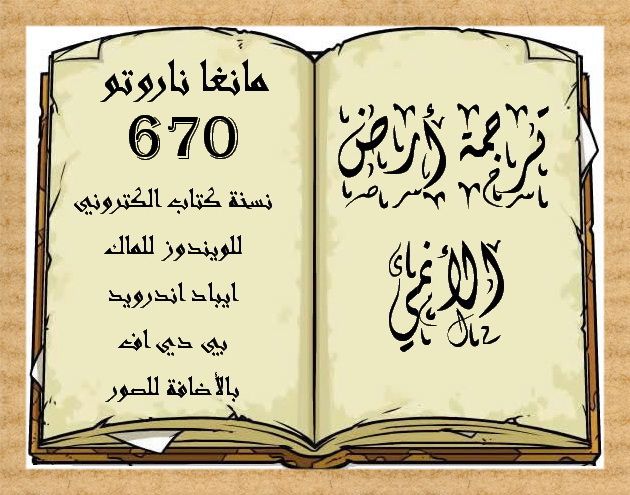 ترجمة أرض
الأنمي
مانغا ناروتو
670
نسخة كتاب الكتروني
للويندوز للماك
ايباد اندرويد
بي دي اف
بالأضافة للصور